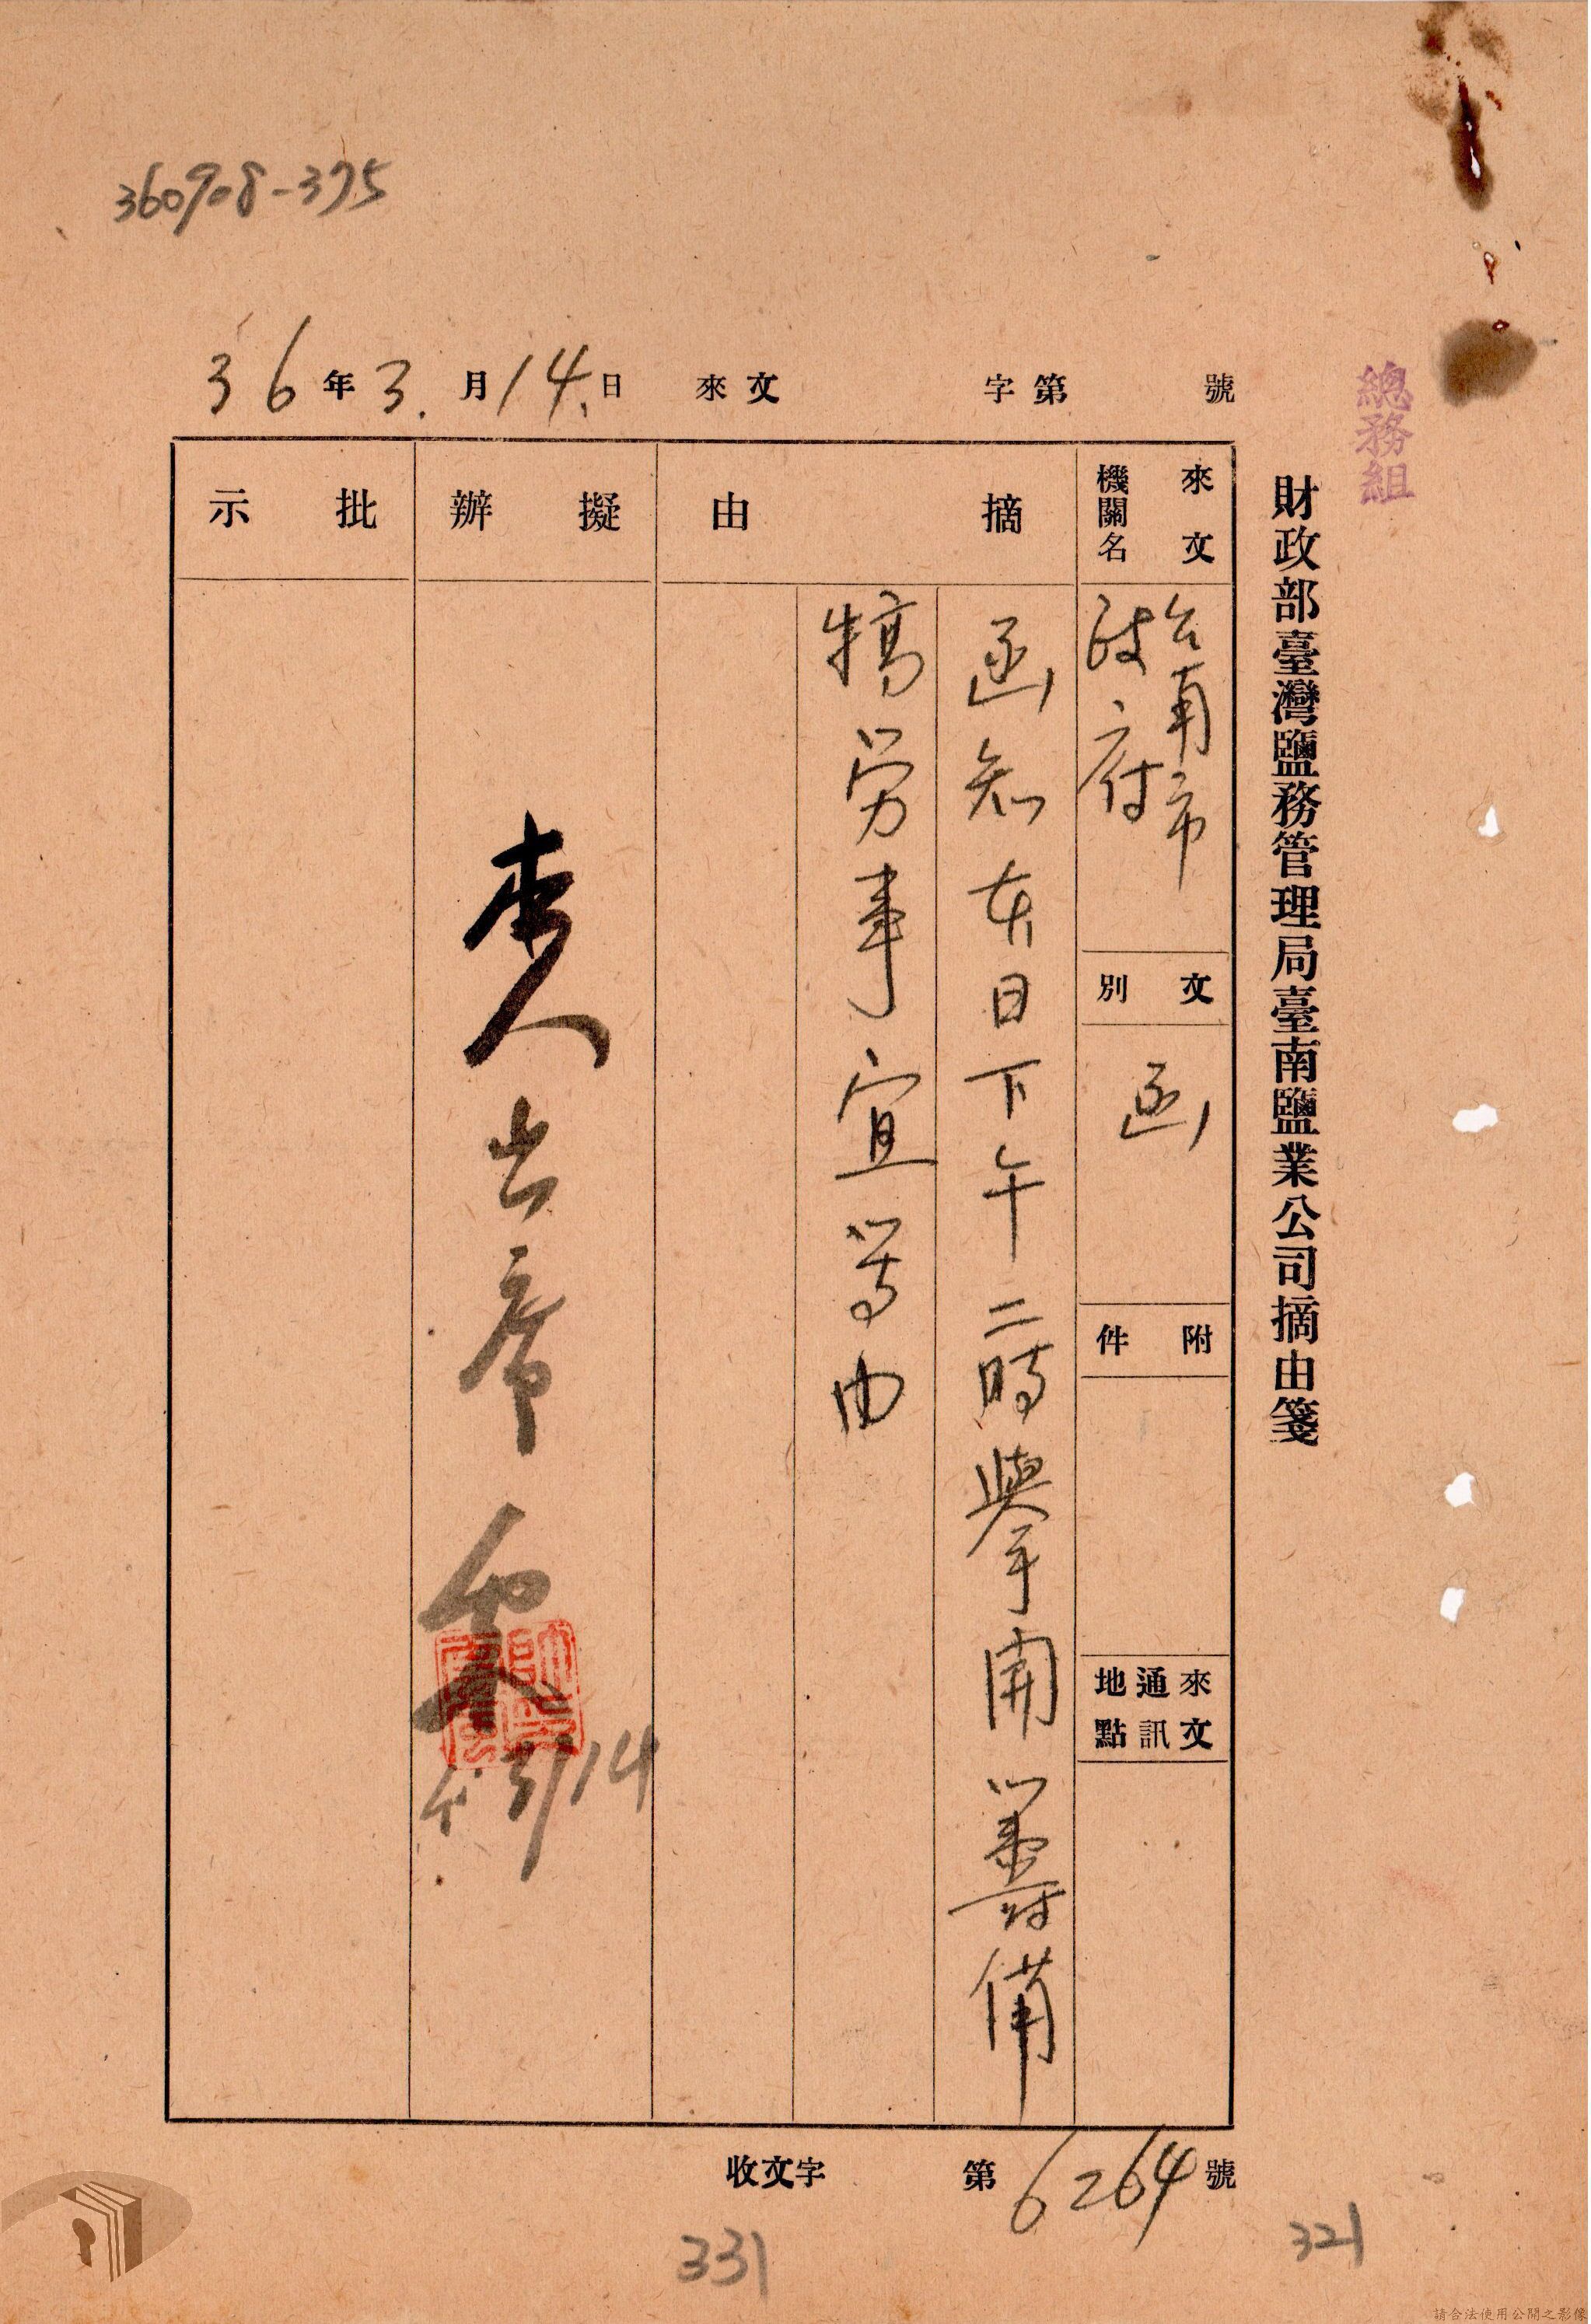 360908-375
總務組
財政部臺灣鹽務管理局臺南鹽業公司摘由箋
36年3月14日 來文 字第 號
來文機關名
台南市
政府
文別
函
附件
來文通訊地點
摘由
函知本日下午二時舉開籌備
犒勞事宜等由
擬辦
本人出席
代 3/14
批示
收文字 第6264號
331
321
請合法使用公開之影像